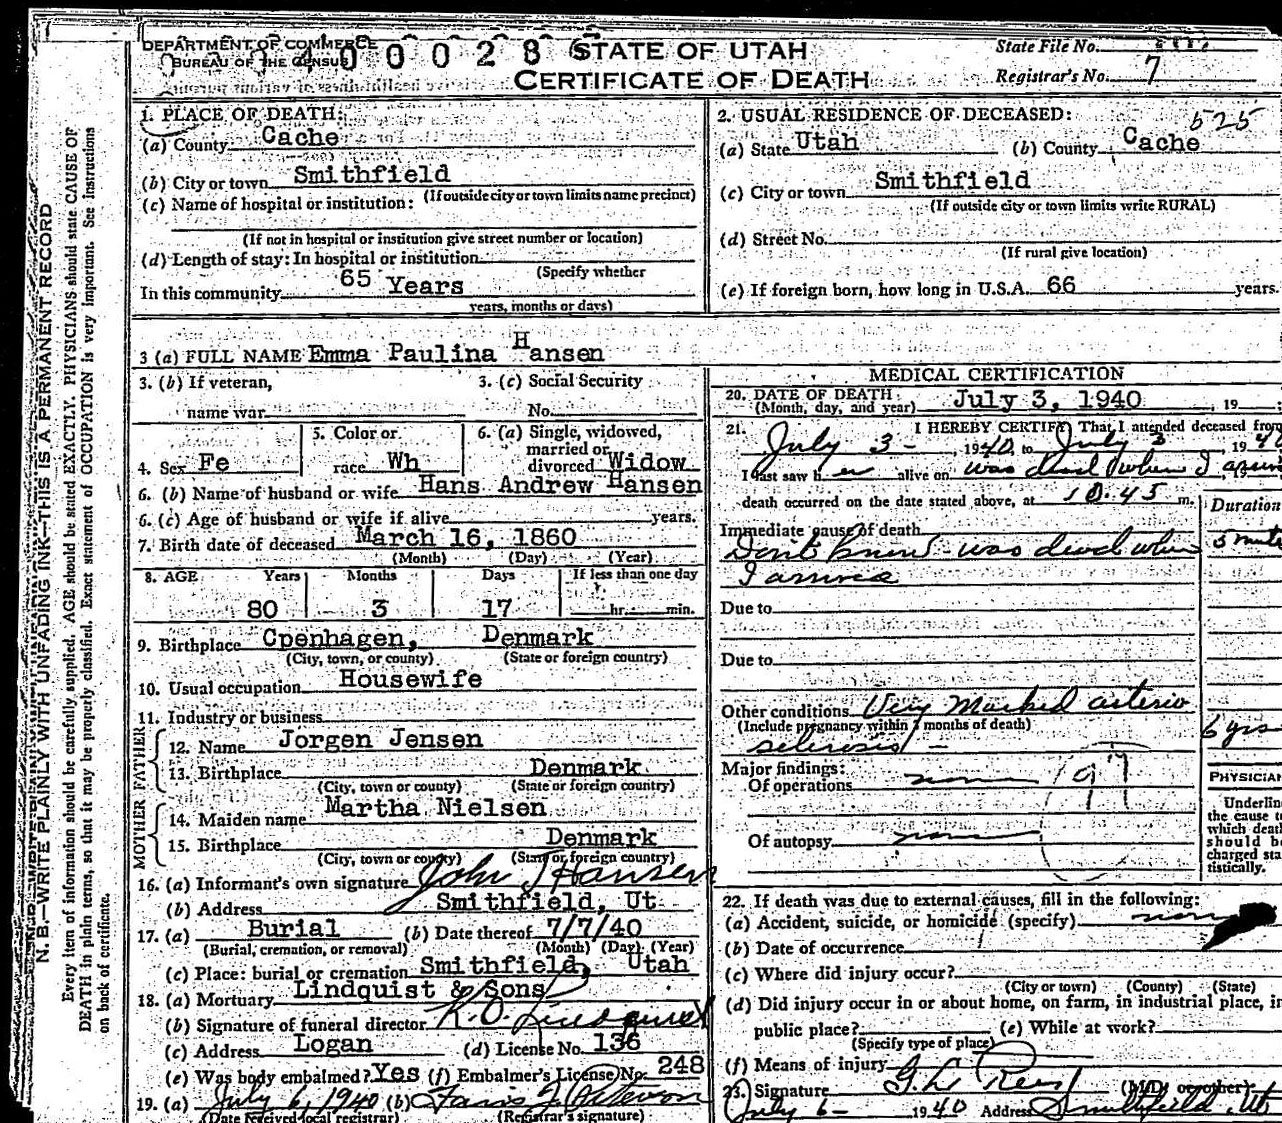 DEPARTMENT OF COMMERCE
BUREAU OF THE CENSUS
STATE OF UTAH
CERTIFICATE OF DEATH
State File No.
Registrar's No. 7
N. B.—WRITE PLAINLY WITH UNFADING INK—THIS IS A PERMANENT RECORD
Every item of information should be carefully supplied. AGE should be stated EXACTLY. PHYSICIANS should state CAUSE OF
DEATH in plain terms, so that it may be properly classified. Exact statement of OCCUPATION is very important. See instructions
on back of certificate.
1. PLACE OF DEATH:
(a) County Cache
(b) City or town Smithfield
(If outside city or town limits name precinct)
(c) Name of hospital or institution:
(If not in hospital or institution give street number or location)
(d) Length of stay: In hospital or institution
(Specify whether
In this community 65 Years
years, months or days)
2. USUAL RESIDENCE OF DECEASED: 525
(a) State Utah (b) County Cache
(c) City or town Smithfield
(If outside city or town limits write RURAL)
(d) Street No.
(If rural give location)
(e) If foreign born, how long in U.S.A. 66 years.
3 (a) FULL NAME Emma Paulina Hansen
3. (b) If veteran, 3. (c) Social Security
name war No.
4. Sex Fe 5. Color or race Wh 6. (a) Single, widowed, married or divorced Widow
6. (b) Name of husband or wife Hans Andrew Hansen
6. (c) Age of husband or wife if alive years.
7. Birth date of deceased March 16, 1860
(Month) (Day) (Year)
8. AGE Years Months Days If less than one day
80 3 17 hr. min.
9. Birthplace Cpenhagen, Denmark
(City, town, or county) (State or foreign country)
10. Usual occupation Housewife
11. Industry or business
FATHER
12. Name Jorgen Jensen
13. Birthplace Denmark
(City, town or county) (State or foreign country)
MOTHER
14. Maiden name Martha Nielsen
15. Birthplace Denmark
(City, town or county) (State or foreign country)
16. (a) Informant's own signature John J Hansen
(b) Address Smithfield, Ut
17. (a) Burial (b) Date thereof 7/7/40
(Burial, cremation, or removal) (Month) (Day) (Year)
(c) Place: burial or cremation Smithfield, Utah
18. (a) Mortuary Lindquist & Sons
(b) Signature of funeral director
(c) Address Logan (d) License No. 136
(e) Was body embalmed? Yes (f) Embalmer's License No. 248
19. (a) July 6, 1940 (b)
(Date received local registrar) (Registrar's signature)
MEDICAL CERTIFICATION
20. DATE OF DEATH
(Month, day, and year) July 3, 1940, 19
21. I HEREBY CERTIFY That I attended deceased from
July 3 - , 1940, to July 3 , 1940
I last saw h er alive on was dead when I
death occurred on the date stated above, at 10.45 m.
Duration
Immediate cause of death
Don't know - was dead when
I arrived
5
Due to
Due to
Other conditions Very Marked arterio
(Include pregnancy within 3 months of death)
sclerosis - 6 yrs
Major findings:
Of operations none 97
Of autopsy none
PHYSICIAN
Underline
the cause to
which death
should be
charged sta-
tistically.
22. If death was due to external causes, fill in the following:
(a) Accident, suicide, or homicide (specify) none
(b) Date of occurrence
(c) Where did injury occur?
(City or town) (County) (State)
(d) Did injury occur in or about home, on farm, in industrial place, in
public place? (e) While at work?
(Specify type of place)
(f) Means of injury
23. Signature G. L. Rees (M.D. or other)
July 6 - 1940 Address Smithfield, Ut